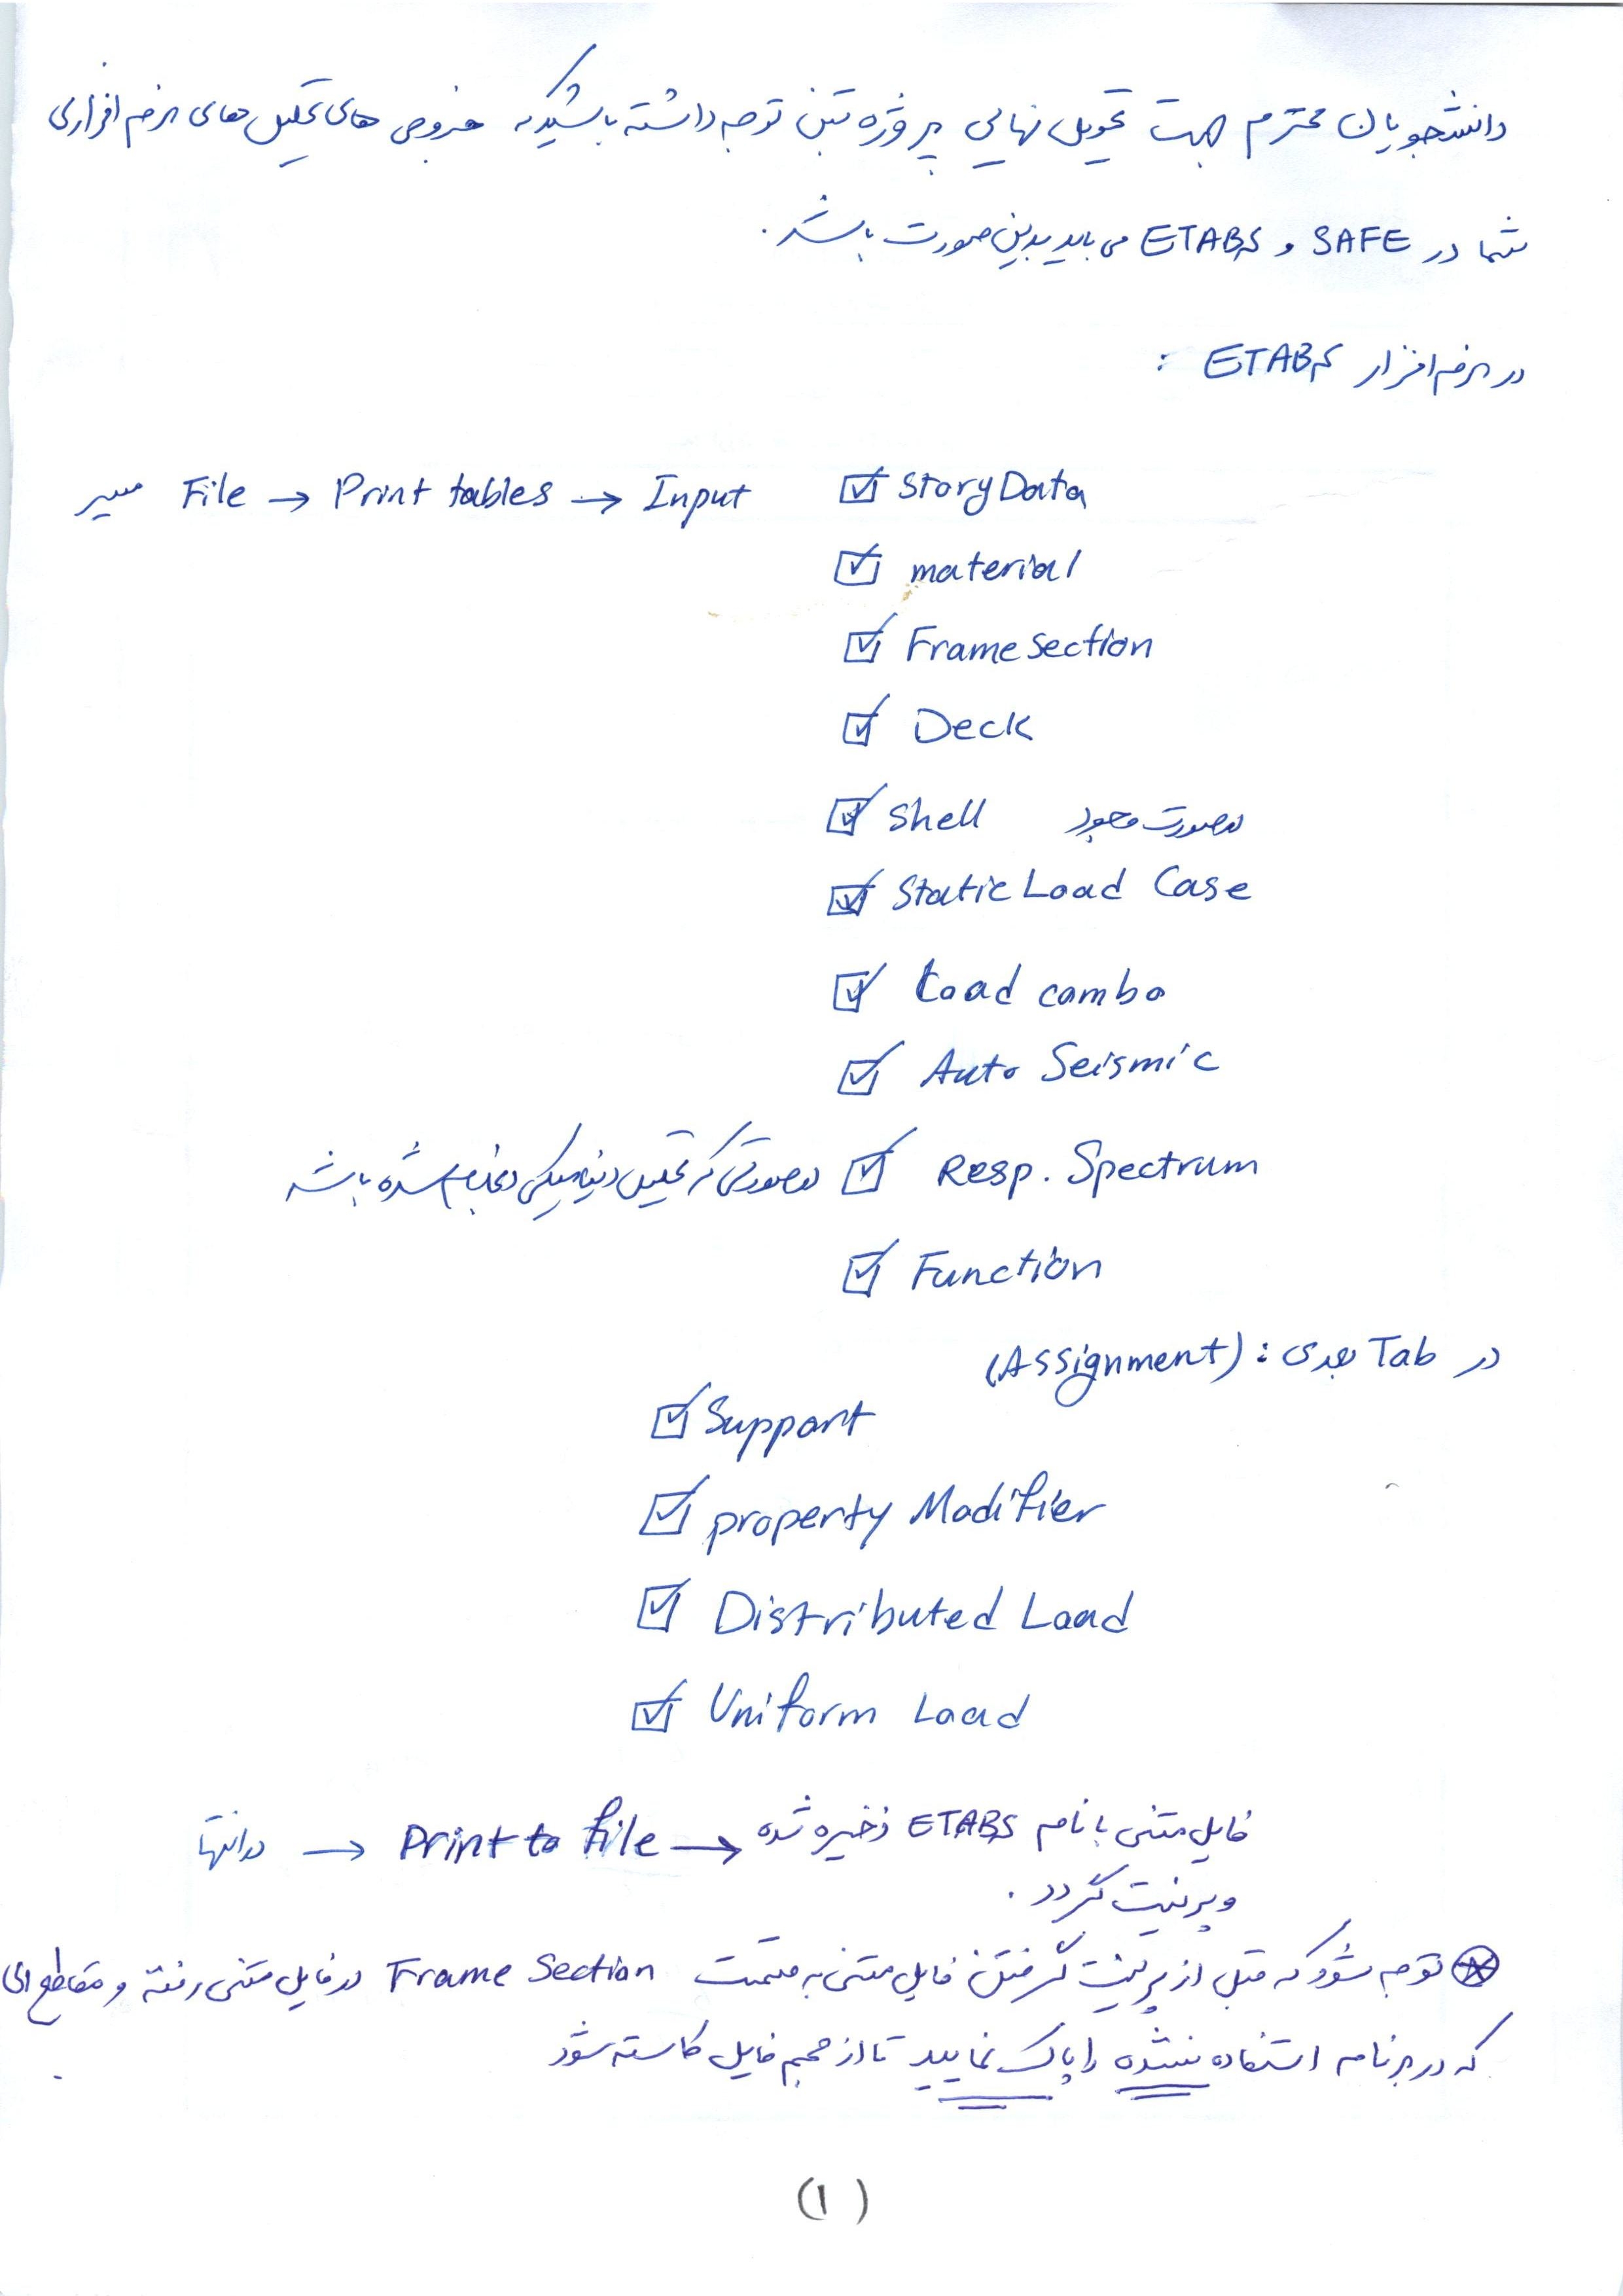 دانشجویان محترم جهت تحویل نهایی پروژه بتن توجه داشته باشید که خروجی های تحلیل های نرم افزاری
شما در SAFE و ETABS می باید بدین صورت باشد.
در نرم افزار ETABS :
مسیر File → Print tables → Input ☑ Story Data
☑ material
☑ Frame section
☑ Deck
☑ Shell درصورت وجود
☑ Static Load Case
☑ Load combo
☑ Auto Seismic
☑ Resp. Spectrum درصورتی که تحلیل دینامیکی انجام شده باشد
☑ Function
در Tab بعدی : (Assignment)
☑ Support
☑ property Modifier
☑ Distributed Load
☑ Uniform Load
درانتها → Print to file → فایل متنی با نام ETABS ذخیره شده
و پرینت گردد .
⊛ توجه شود که قبل از پرینت گرفتن فایل متنی به قسمت Frame Section در فایل متنی رفته و مقاطع ای
که در برنامه استفاده نشده را پاک نمایید تا از حجم فایل کاسته شود .
(۱)